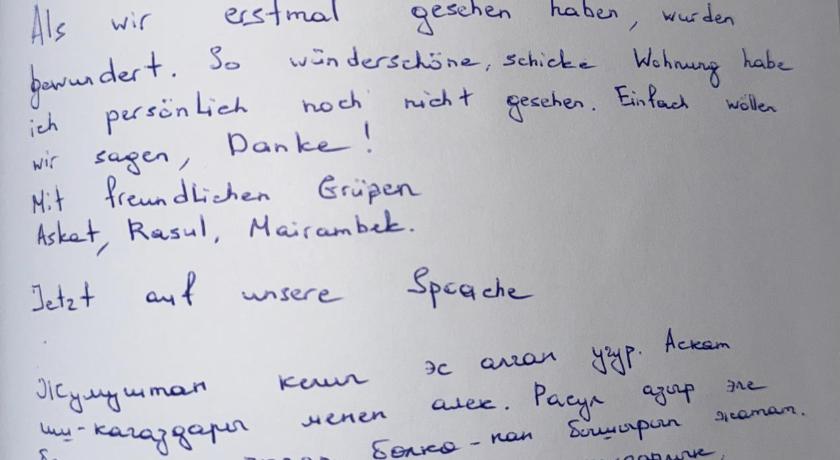 Als wir erstmal gesehen haben, wurden
bewundert. So wünderschöne, schicke Wohnung habe
ich persönlich noch nicht gesehen. Einfach wollen
wir sagen, Danke!
Mit freundlichen Grüßen
Askat, Rasul, Mairambek.
Jetzt auf unsere Sprache
Жумуштан келип эс алган учур. Аскат
иш-кагаздары менен алек. Расул азыр эле
бөлкө-нан бышырып жатат.